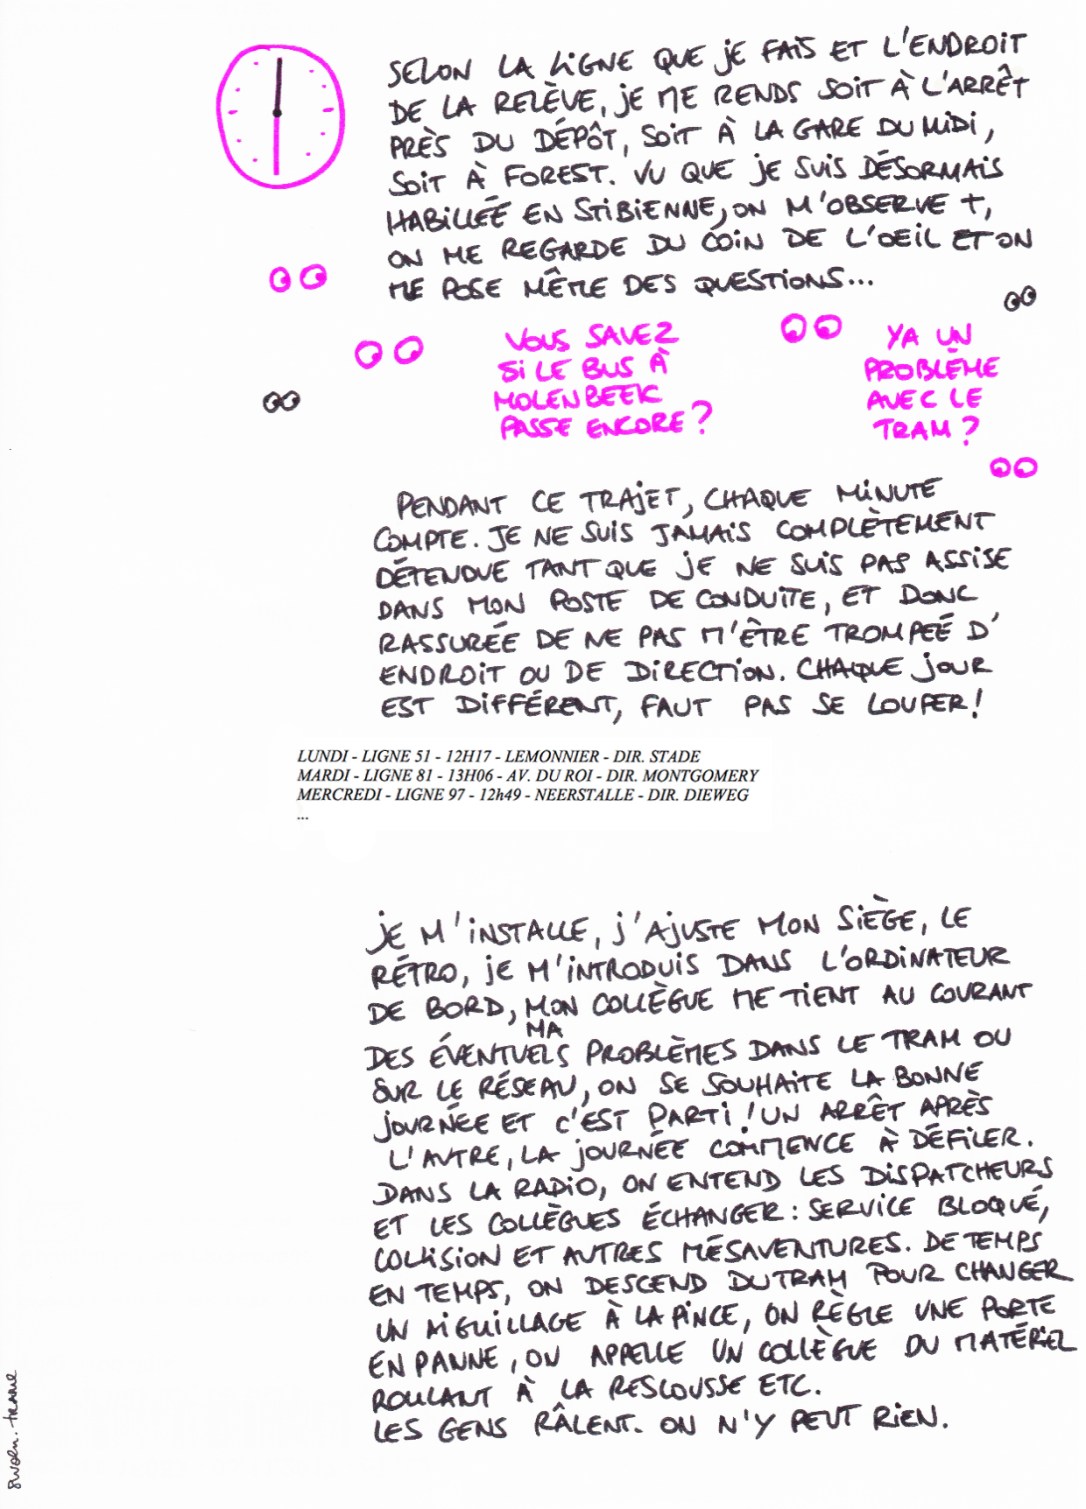 SELON LA LIGNE QUE JE FAIS ET L'ENDROIT
DE LA RELÈVE, JE ME RENDS SOIT À L'ARRÊT
PRÈS DU DÉPÔT, SOIT À LA GARE DU MIDI,
SOIT À FOREST. VU QUE JE SUIS DÉSORMAIS
HABILLÉE EN STIBIENNE, ON M'OBSERVE +,
ON ME REGARDE DU COIN DE L'OEIL ET ON
ME POSE MÊME DES QUESTIONS...
VOUS SAVEZ
SI LE BUS À
MOLENBEEK
PASSE ENCORE ?
YA UN
PROBLÈME
AVEC LE
TRAM ?
PENDANT CE TRAJET, CHAQUE MINUTE
COMPTE. JE NE SUIS JAMAIS COMPLÈTEMENT
DÉTENDUE TANT QUE JE NE SUIS PAS ASSISE
DANS MON POSTE DE CONDUITE, ET DONC
RASSURÉE DE NE PAS M'ÊTRE TROMPEÉ D'
ENDROIT OU DE DIRECTION. CHAQUE JOUR
EST DIFFÉRENT, FAUT PAS SE LOUPER !
LUNDI - LIGNE 51 - 12H17 - LEMONNIER - DIR. STADE
MARDI - LIGNE 81 - 13H06 - AV. DU ROI - DIR. MONTGOMERY
MERCREDI - LIGNE 97 - 12h49 - NEERSTALLE - DIR. DIEWEG
...
JE M'INSTALLE, J'AJUSTE MON SIÈGE, LE
RÉTRO, JE M'INTRODUIS DANS L'ORDINATEUR
DE BORD, MON COLLÈGUE ME TIENT AU COURANT
MA
DES ÉVENTUELS PROBLÈMES DANS LE TRAM OU
SUR LE RÉSEAU, ON SE SOUHAITE LA BONNE
JOURNÉE ET C'EST PARTI ! UN ARRÊT APRÈS
L'AUTRE, LA JOURNÉE COMMENCE À DÉFILER.
DANS LA RADIO, ON ENTEND LES DISPATCHEURS
ET LES COLLÈGUES ÉCHANGER : SERVICE BLOQUÉ,
COLLISION ET AUTRES MÉSAVENTURES. DE TEMPS
EN TEMPS, ON DESCEND DU TRAM POUR CHANGER
UN AIGUILLAGE À LA PINCE, ON RÈGLE UNE PORTE
EN PANNE, OU APPELLE UN COLLÈGUE DU MATÉRIEL
ROULANT À LA RESCOUSSE ETC.
LES GENS RÂLENT. ON N'Y PEUT RIEN.